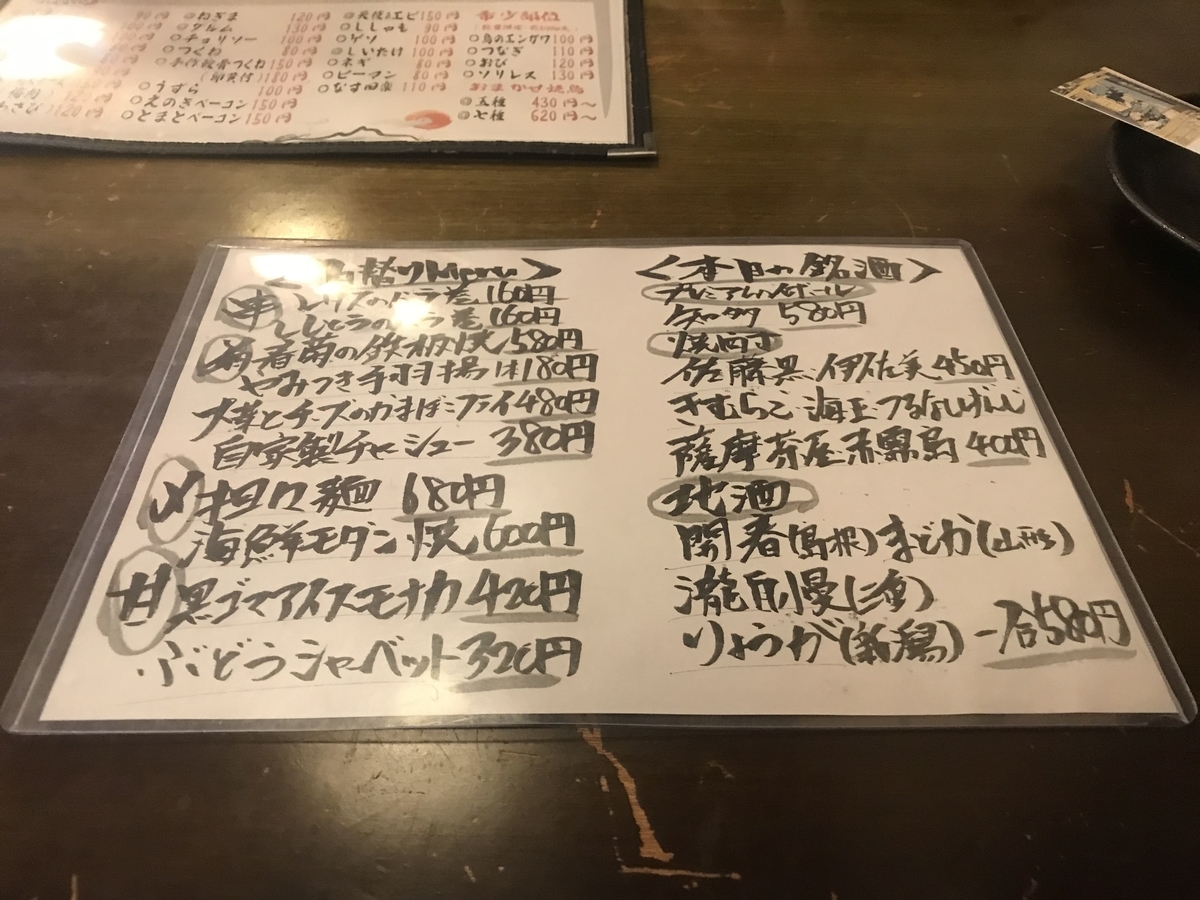 90円 ◎ねぎま 120円 ◎天使のエビ 150円 希少部位
130円 ○ししゃも 90円
○チョリソー 100円 ○ゲソ 100円 ○鳥のエンガワ 100円
○つくね 80円 ◎しいたけ 100円 ○つなぎ 110円
○手作軟骨つくね 150円 ○ネギ 80円 ○おび 120円
(卵黄付) 180円 ○ピーマン 80円 ○ソリレス 130円
○うずら 100円 ○なす田楽 110円 おまかせ焼鳥
120円 ○えのきベーコン 150円 ◎五種 430円〜
わさび 120円 ○とまとベーコン 150円 ◎七種 620円〜
替りMenu>
串 のバラ巻 160円
ししとうのバラ巻 160円
春菊の鉄板焼 580円
やみつき手羽揚 1本180円
大葉とチーズのかまぼこフライ 480円
自家製チャーシュー 380円
〆 担々麺 680円
海鮮モダン焼 600円
甘 黒ゴマアイスモナカ 420円
ぶどうシャーベット 320円
<本日の銘酒>
プレミアムハイボール
知多 580円
焼酎
佐藤黒 伊佐美 450円
きむらこ 海王 つるなしげんじ
薩摩茶屋 赤霧島 400円
地酒
開春(島根) まどか(山形)
瀧自慢(三重)
りょうが(新潟) 一合580円